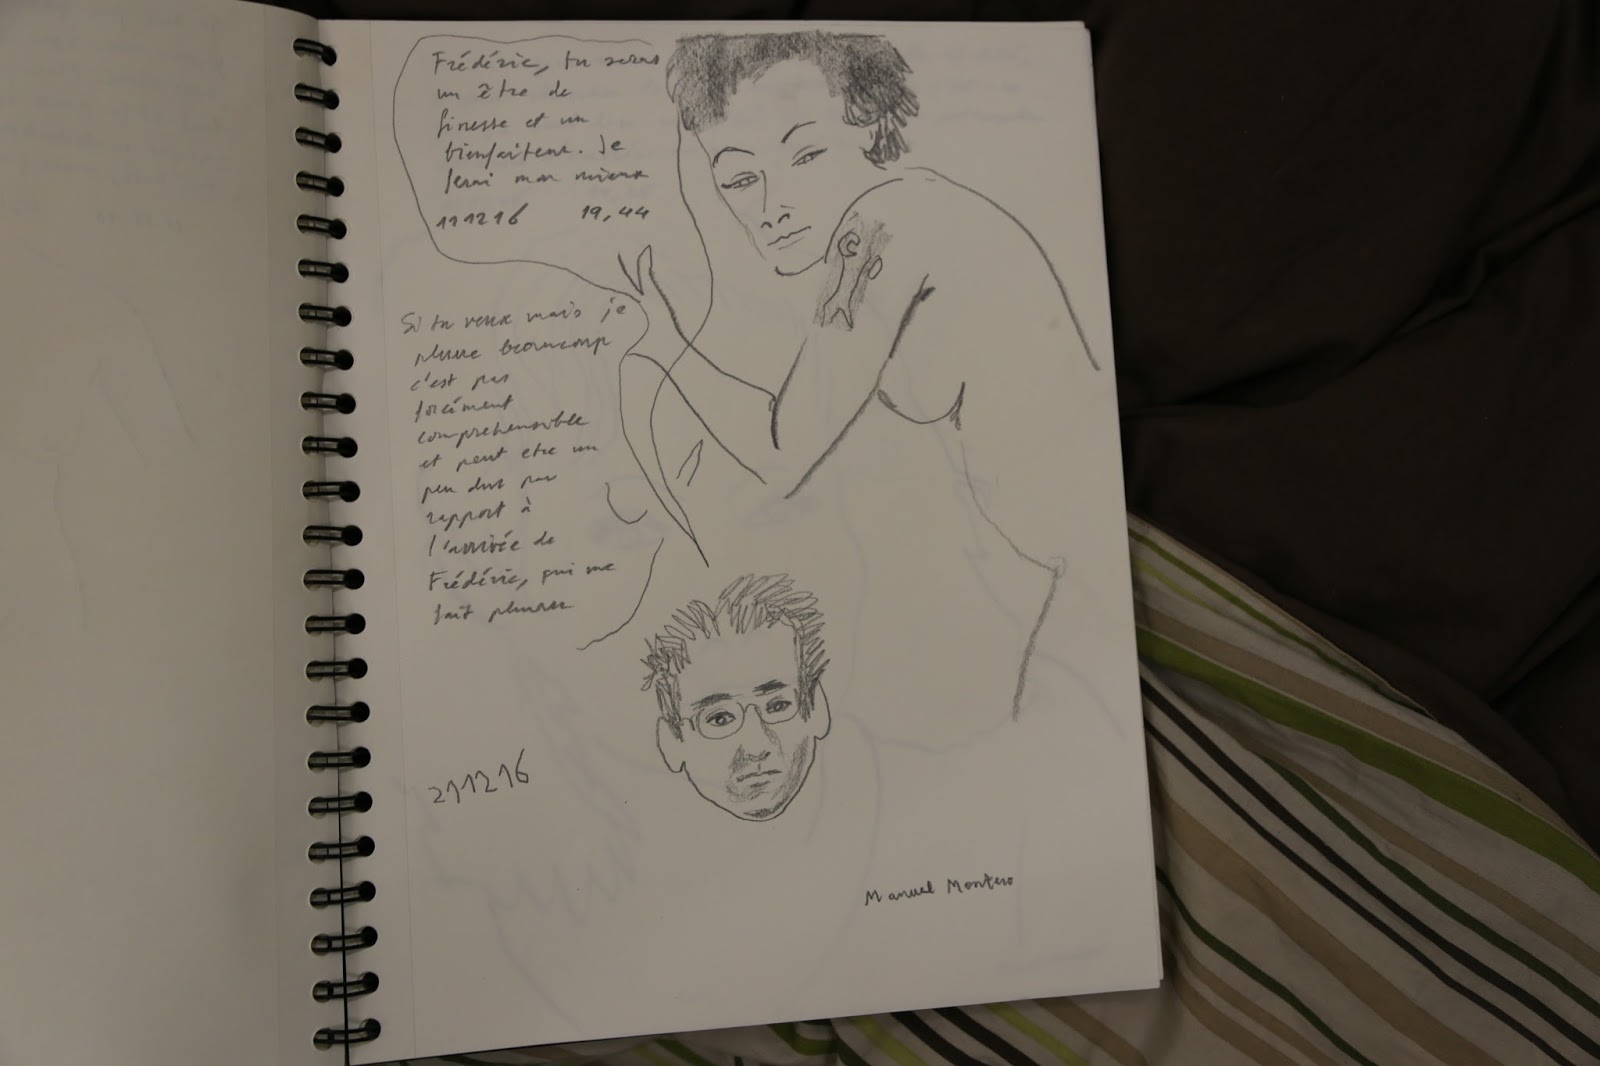 Frédéric, tu seras
un être de
finesse et un
bienfaiteur. Je
ferai mon mieux
111216 19,44
Si tu veux mais je
pleure beaucoup
c'est pas
forcément
compréhensible
et peut etre un
peu dur par
rapport à
l'arrivée de
Frédéric, qui me
fait pleurer
211216
Manuel Montero